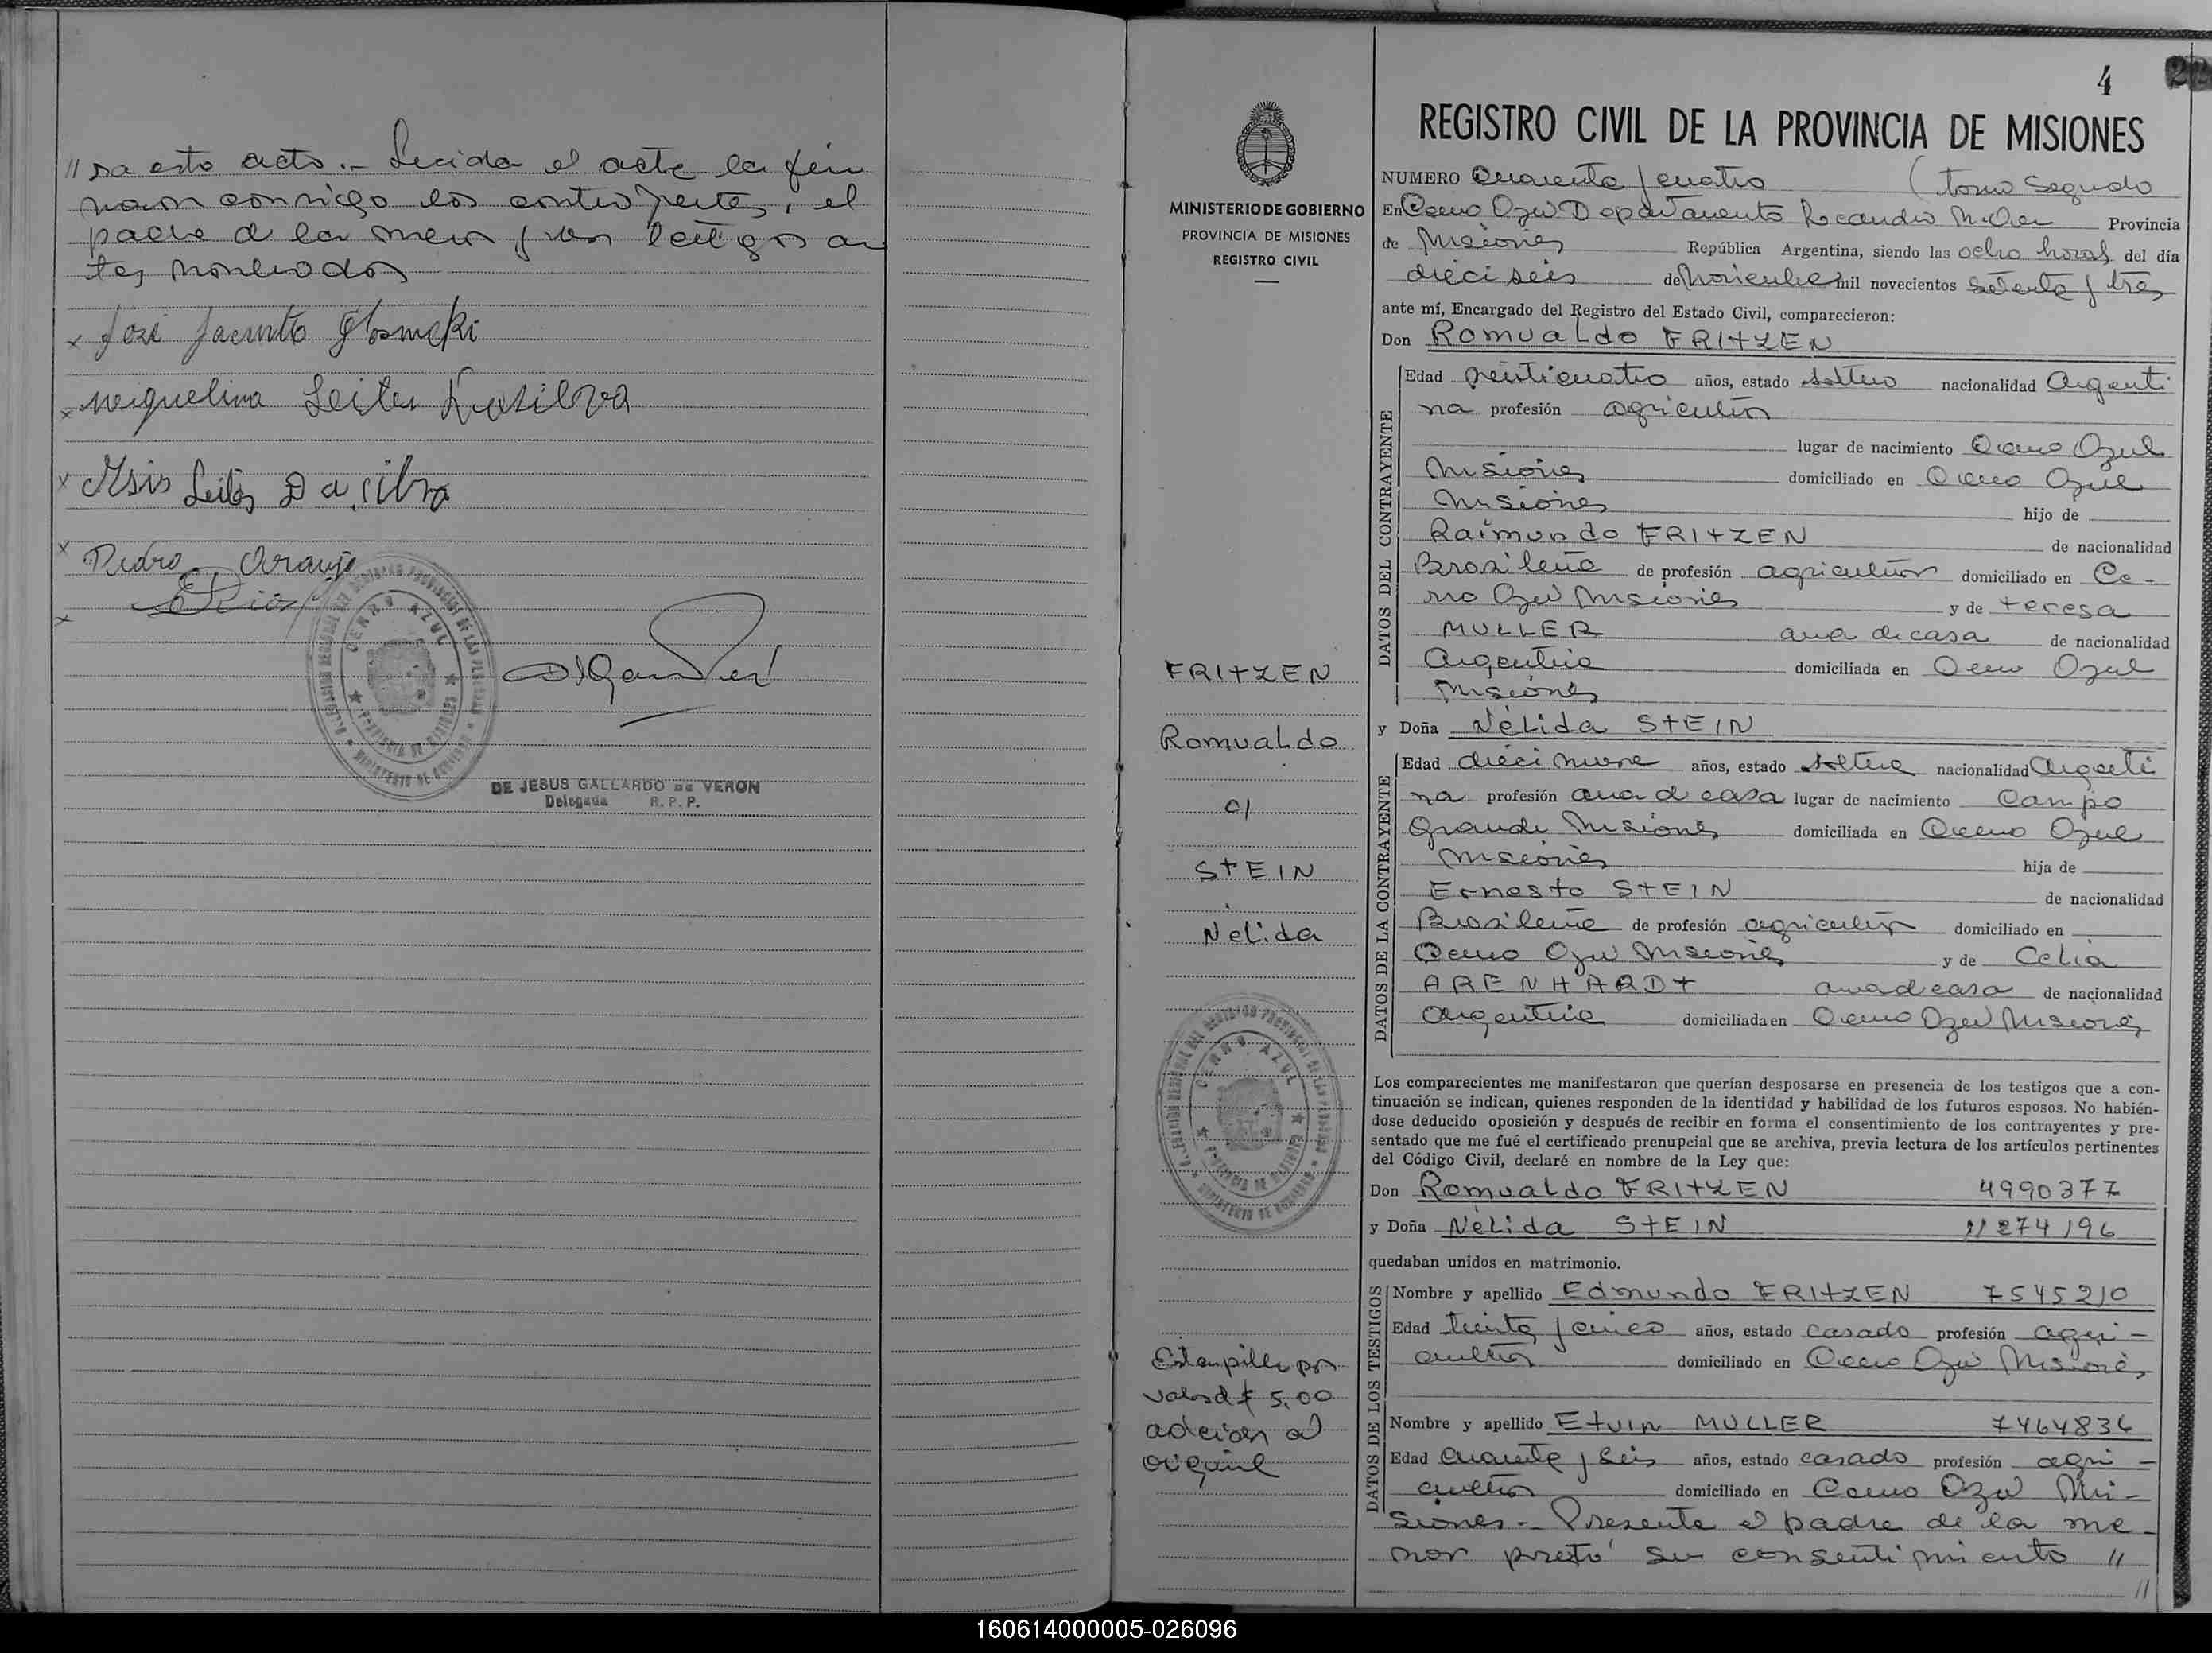 // ra este acto.- Leida el acta la fir
man conmigo los contrayentes, el
padre de la menor y los testigos an
tes nombrados
x José Jacinto
x Miquelina Leites Dasilva
x Leites Da silva
x Pedro Araujo
x
CERRO AZUL
DE JESUS GALLARDO DE VERON
Delegada R. P. P.
MINISTERIO DE GOBIERNO
PROVINCIA DE MISIONES
REGISTRO CIVIL
FRITZEN
Romualdo
c/
STEIN
Nelida
CERRO AZUL
Estampilla por
valor d $ 5,00
adherida al
original
4
22
REGISTRO CIVIL DE LA PROVINCIA DE MISIONES
NUMERO Cuarenta y cuatro (tomo Segundo
En Cerro Azul Departamento Leandro N. Alem Provincia
de Misiones República Argentina, siendo las ocho horas del día
dieciseis de Noviembre mil novecientos setenta y tres
ante mí, Encargado del Registro del Estado Civil, comparecieron:
Don Romualdo FRITZEN
DATOS DEL CONTRAYENTE
Edad veinticuatro años, estado soltero nacionalidad Argenti
na profesión agricultor
lugar de nacimiento Cerro Azul
Misiones domiciliado en Cerro Azul
Misiones hijo de
Raimundo FRITZEN de nacionalidad
Brasileña de profesión agricultor domiciliado en Ce-
rro Azul Misiones y de Teresa
MULLER ama de casa de nacionalidad
Argentina domiciliada en Cerro Azul
Misiones
y Doña Nélida STEIN
DATOS DE LA CONTRAYENTE
Edad diecinueve años, estado soltera nacionalidad Argenti
na profesión ama d casa lugar de nacimiento Campo
Grande Misiones domiciliada en Cerro Azul
Misiones hija de
Ernesto STEIN de nacionalidad
Brasileña de profesión agricultor domiciliado en
Cerro Azul Misiones y de Celia
ARENHARDT ama d casa de nacionalidad
Argentina domiciliada en Cerro Azul Misiones
Los comparecientes me manifestaron que querían desposarse en presencia de los testigos que a con-
tinuación se indican, quienes responden de la identidad y habilidad de los futuros esposos. No habién-
dose deducido oposición y después de recibir en forma el consentimiento de los contrayentes y pre-
sentado que me fué el certificado prenupcial que se archiva, previa lectura de los artículos pertinentes
del Código Civil, declaré en nombre de la Ley que:
Don Romualdo FRITZEN 4990377
y Doña Nélida STEIN 11274196
quedaban unidos en matrimonio.
DATOS DE LOS TESTIGOS
Nombre y apellido Edmundo FRITZEN 7545210
Edad treinta y cinco años, estado casado profesión agri-
cultor domiciliado en Cerro Azul Misiones
Nombre y apellido Etvin MULLER 7464836
Edad cuarenta y seis años, estado casado profesión agri-
cultor domiciliado en Cerro Azul Mi-
siones.- Presente el padre de la me-
nor prestó su consentimiento //
//
160614000005-026096